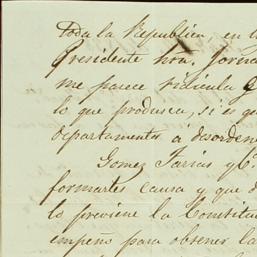 toda la Republica, en
Presidente hra.
me parece ridicula
lo que produsca, si es qe
departamentos á desorden
Gomez Farias y
formarles causa y que
lo previene la Constitu
empeño para obtener la